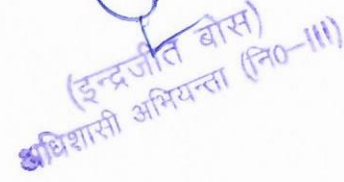 (इन्द्रजीत बोस)
अधिशासी अभियन्ता (नि0–III)